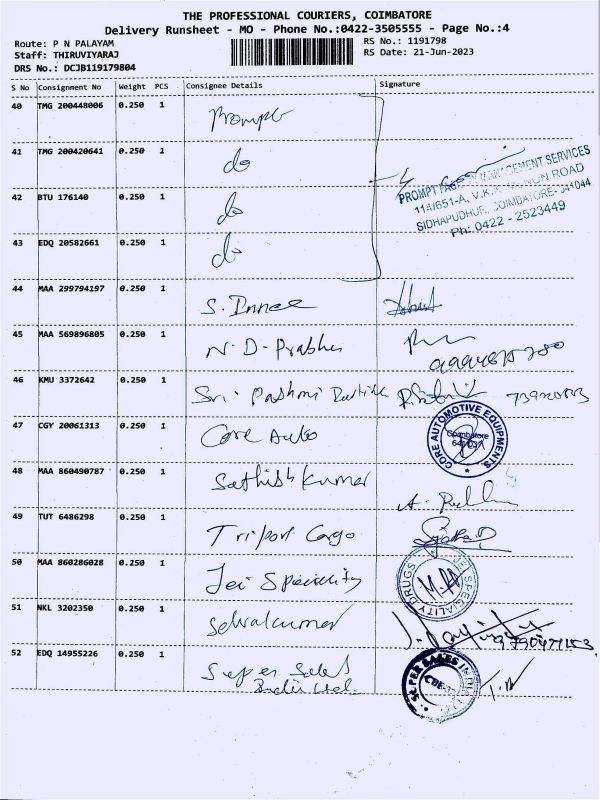 THE PROFESSIONAL COURIERS, COIMBATORE
Delivery Runsheet - MO - Phone No.:0422-3505555 - Page No.:4
Route: P N PALAYAM
RS No.: 1191798
Staff: THIRUVIYARAJ
RS Date: 21-Jun-2023
DRS No.: DCJB119179804
S No Consignment No Weight PCS Consignee Details Signature
40 TMG 200448006 0.250 1 Prompt
41 TMG 200420641 0.250 1 do
PROMPT MANAGEMENT SERVICES
114/651-A, V.K.K. MENON ROAD
SIDHAPUDHUR, COIMBATORE- 641044
Ph: 0422 - 2523449
42 BTU 176140 0.250 1 do
43 EDQ 20582661 0.250 1 do
44 MAA 299794197 0.250 1 S.
45 MAA 569896805 0.250 1 N. D. Prabhu
46 KMU 3372642 0.250 1 Sri
47 CGY 20061313 0.250 1 Core Auto
CORE AUTOMOTIVE EQUIPMENTS
Coimbatore
48 MAA 860490787 0.250 1 Sathish Kumar
49 TUT 6486298 0.250 1 Triport Cargo
50 MAA 860286028 0.250 1 Jei Speciality
JEI SPECIALITY DRUGS
51 NKL 3202350 0.250 1 Selvakumar
52 EDQ 14955226 0.250 1 Super Sales
India Ltd.